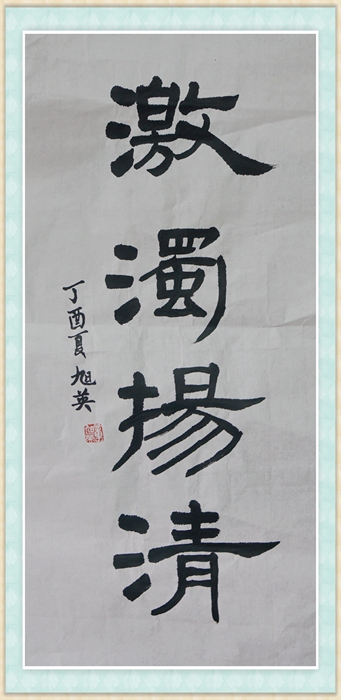 激濁揚清
丁酉夏旭英